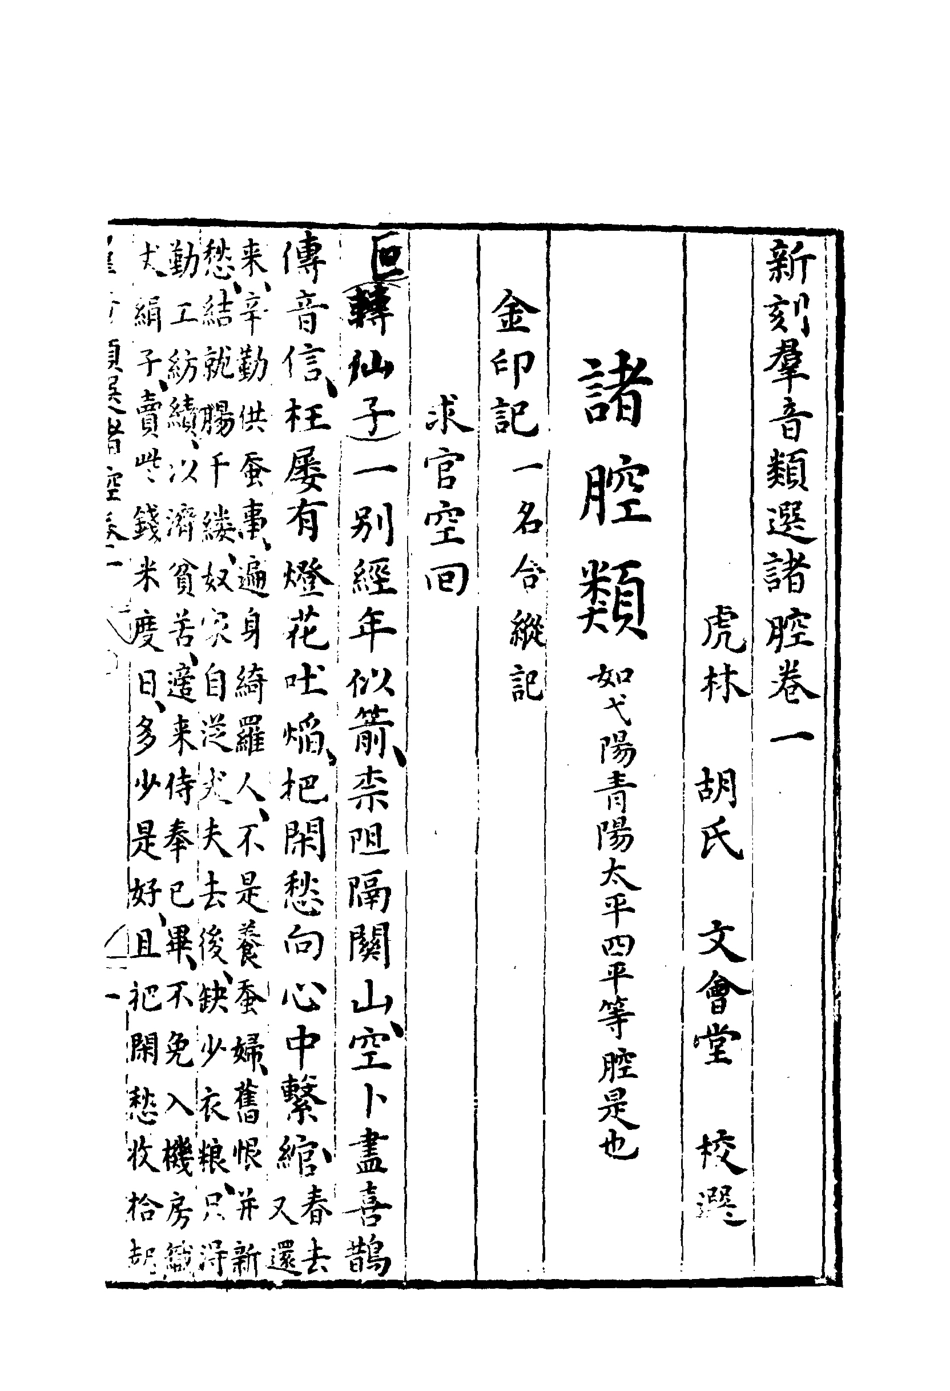 新刻羣音類選諸腔卷一
虎林 胡氏 文會堂 校選
諸腔類 如弋陽青陽太平四平等腔是也
金印記 一名合縱記
求官空囘
轉仙子一別經年似箭柰阻隔關山空卜盡喜鵲
傳音信枉屡有燈花吐焰把閑愁向心中繫綰 春去又還
来辛勤供蚕事遍身綺羅人不是養蚕婦舊恨并新
愁結就腸千縷奴家自從丈夫去後缺少衣粮只淂
勤工紡績以濟貧苦適来侍奉已畢不免入機房織
丈絹子賣些錢米度日多少是好且把閑愁收拾起